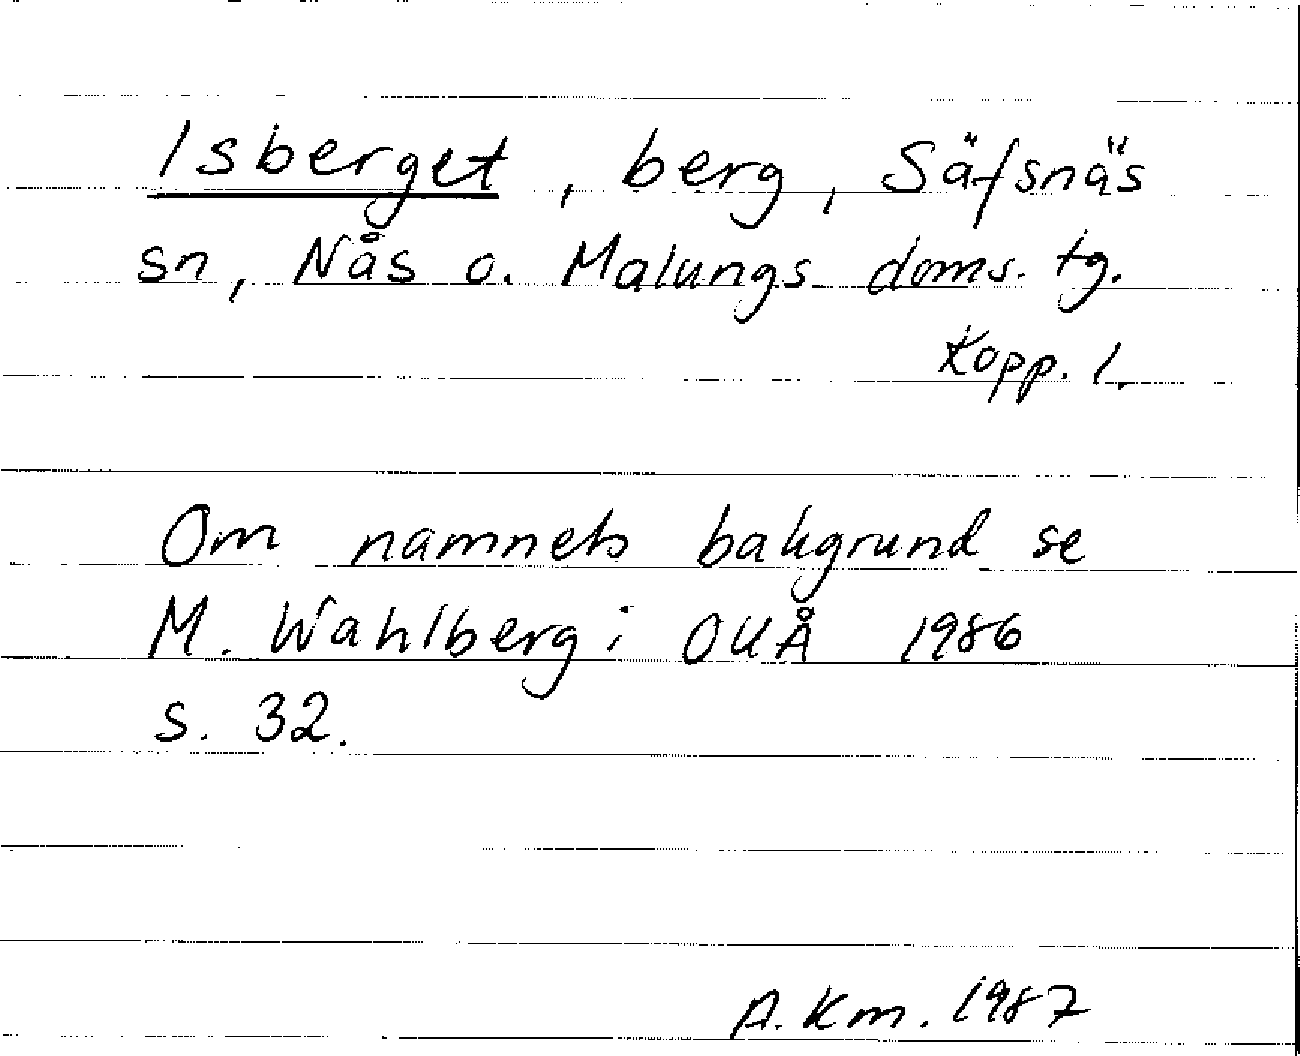 Isberget, berg, Säfsnäs
sn, Nås o. Malungs doms. tg.
Kopp. l.
Om namnets bakgrund se
M. Wahlberg i OUÅ 1986
s. 32.
A. Km. 1987